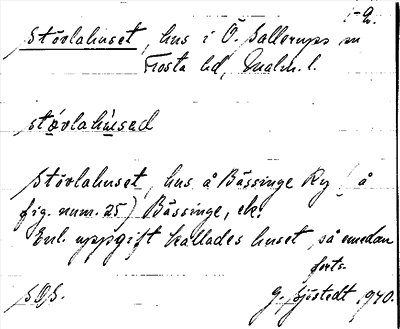 1-2.
Stövlahuset, hus i Ö. Sallerups sn
Frosta hd, Malm. l.
stövlahused
Stövlahuset, hus å Bässinge Ry (å
fig. num. 25) Bässinge, ek.
Enl. uppgift kallades huset, så emedan
forts.
SOS. G. Sjöstedt 1940.